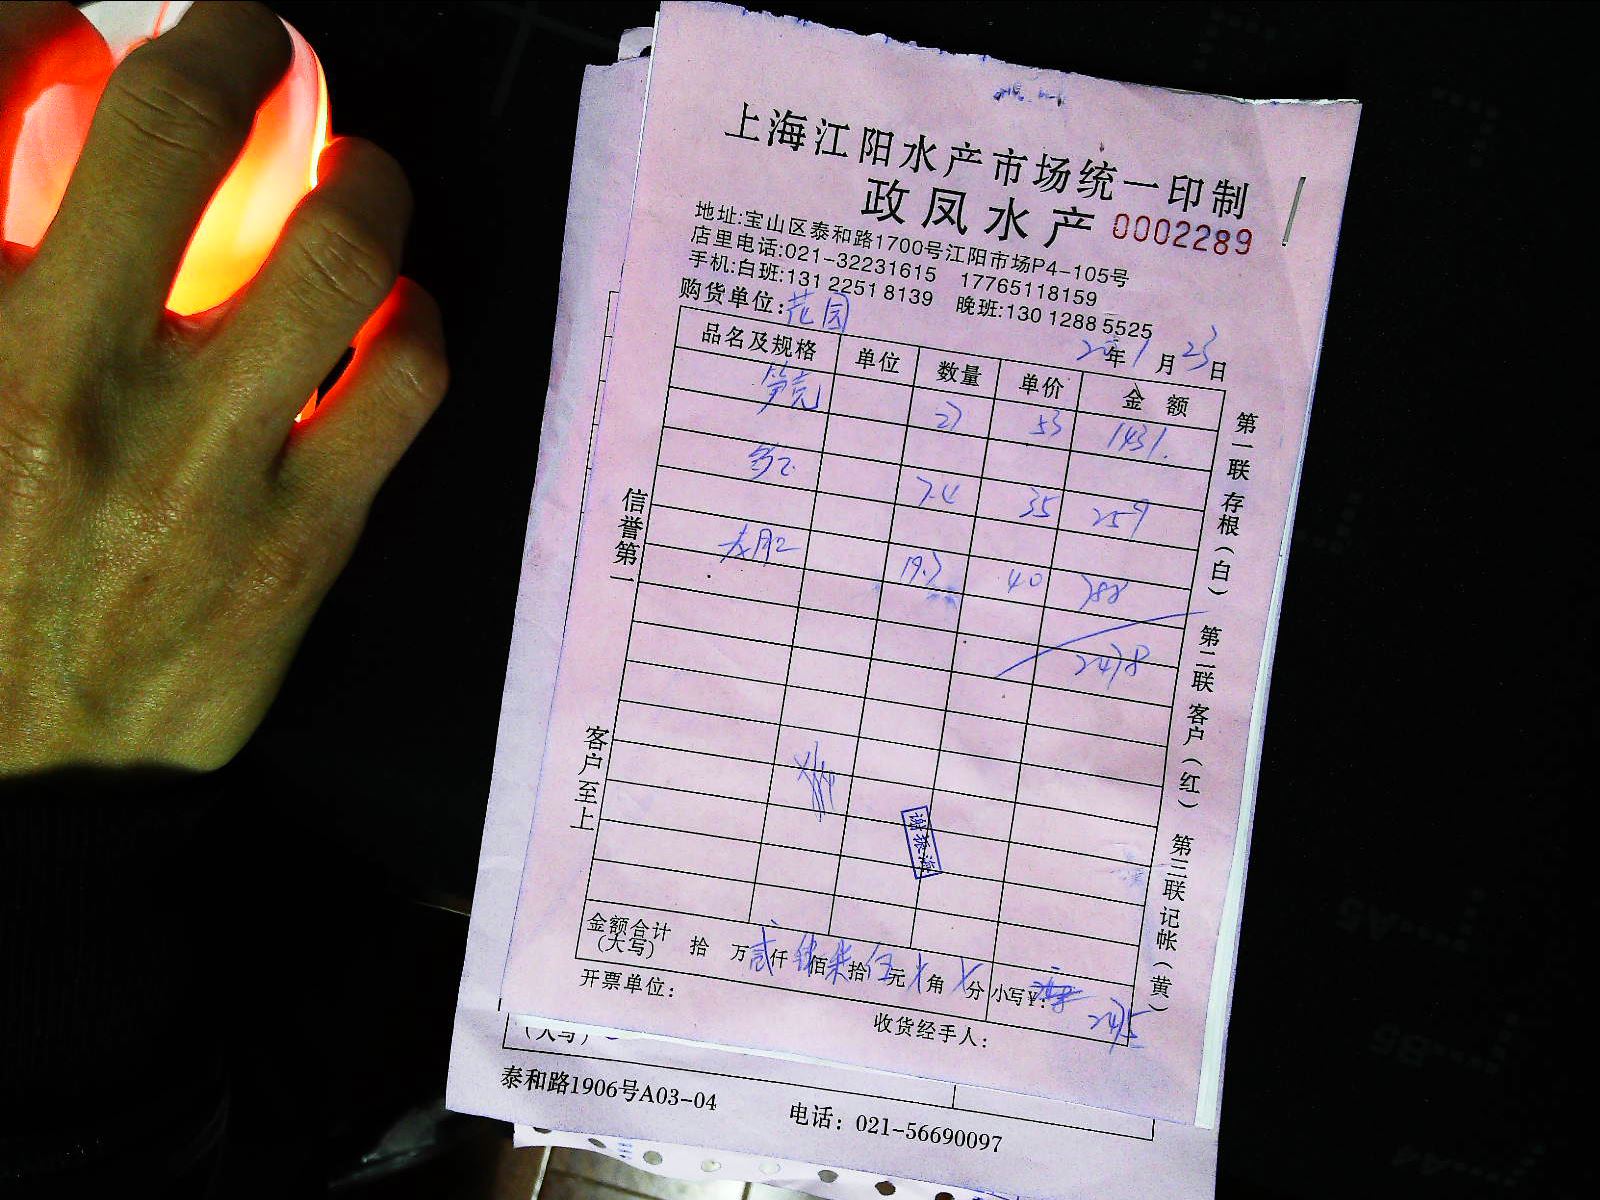 上海江阳水产市场统一印制
政凤水产 0002289
地址:宝山区泰和路1700号江阳市场P4-105号
店里电话:021-32231615 17765118159
手机:白班:131 2251 8139 晚班:130 1288 5525
购货单位:花园
年 1月 23日
品名及规格 单位 数量 单价 金额
笋壳 27 53 1431.
7.4 35 259
19.7 40 788
2478
金额合计（大写） 拾 万 贰仟 佰柒拾伍元 角 分 小写¥: 2475
开票单位:
收货经手人:
信誉第一
客户至上
第一联 存根（白） 第二联 客户（红） 第三联 记帐（黄）
（大写）
泰和路1906号A03-04 电话: 021-56690097